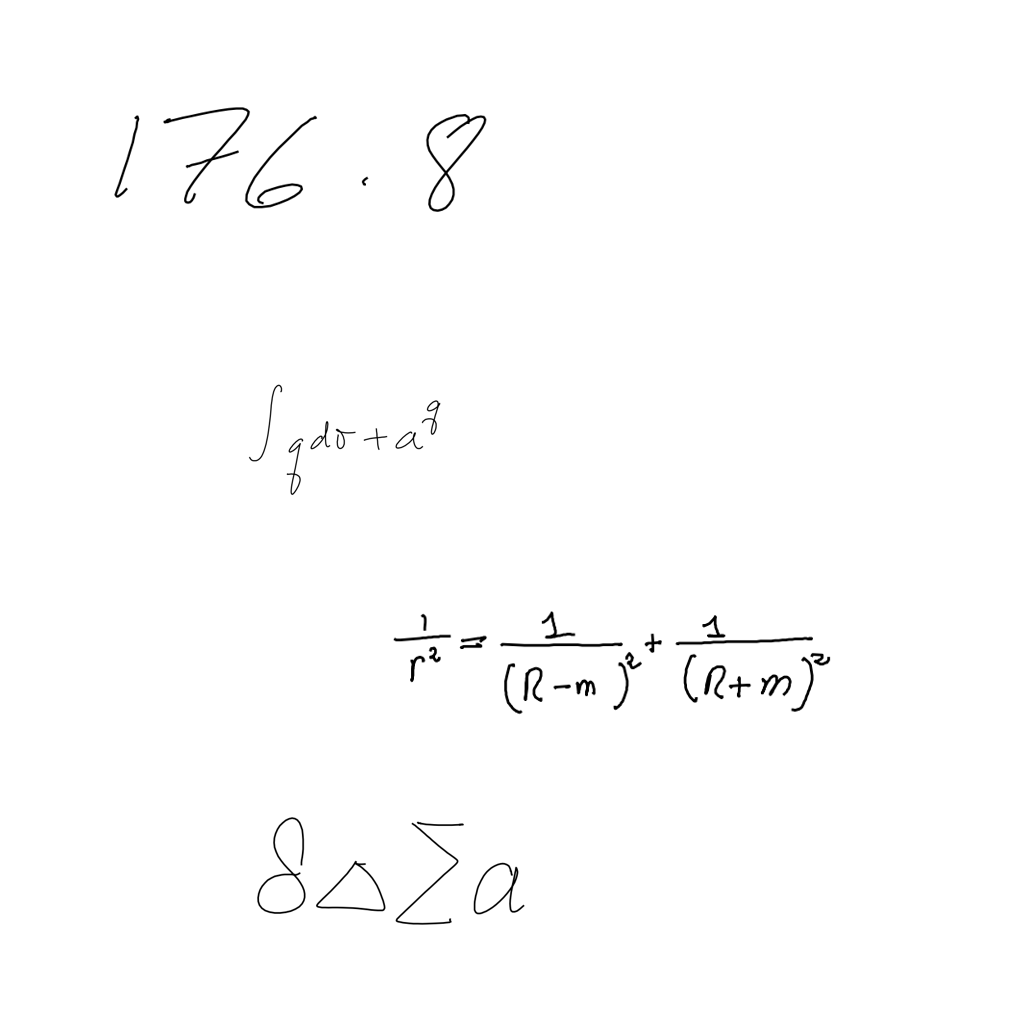 176.8
∫qdσ+a^q
\frac{1}{r^2}=\frac{1}{(R-m)^2}+\frac{1}{(R+m)^2}
δΔ∑a